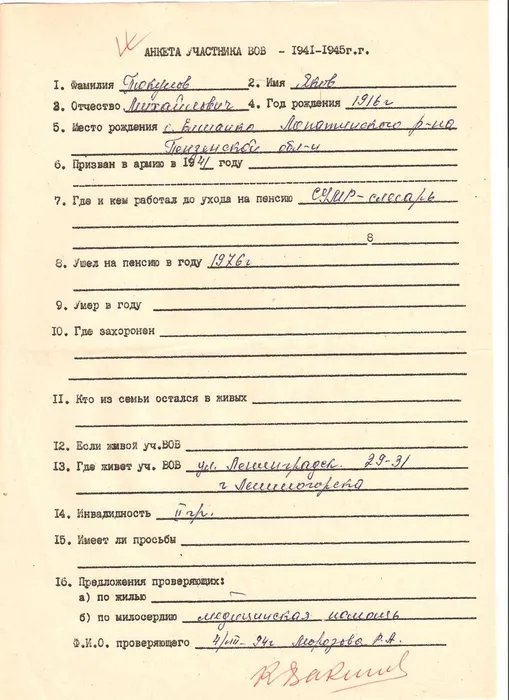 АНКЕТА УЧАСТНИКА ВОВ - 1941-1945г.г.
1. Фамилия 2. Имя Яков
3. Отчество Михайлович 4. Год рождения 1916г
5. Место рождения с. Лопатинского р-на
Пензенской обл-и
6. Призван в армию в 1941 году
7. Где и кем работал до ухода на пенсию слесарь
8
8. Ушел на пенсию в году 1976г
9. Умер в году
10. Где захоронен
11. Кто из семьи остался в живых
12. Если живой уч.ВОВ
13. Где живет уч. ВОВ ул. Ленинградск. 29-31
г Лениногорска
14. Инвалидность II гр.
15. Имеет ли просьбы
16. Предложения проверяющих:
а) по жилью
б) по милосердию медицинская помощь
Ф.И.О. проверяющего 4/VIII-94г Морозова Р.А.